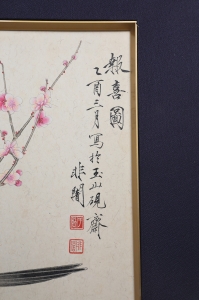 報喜圖
乙酉三月寫於玉山硯齋
非闇